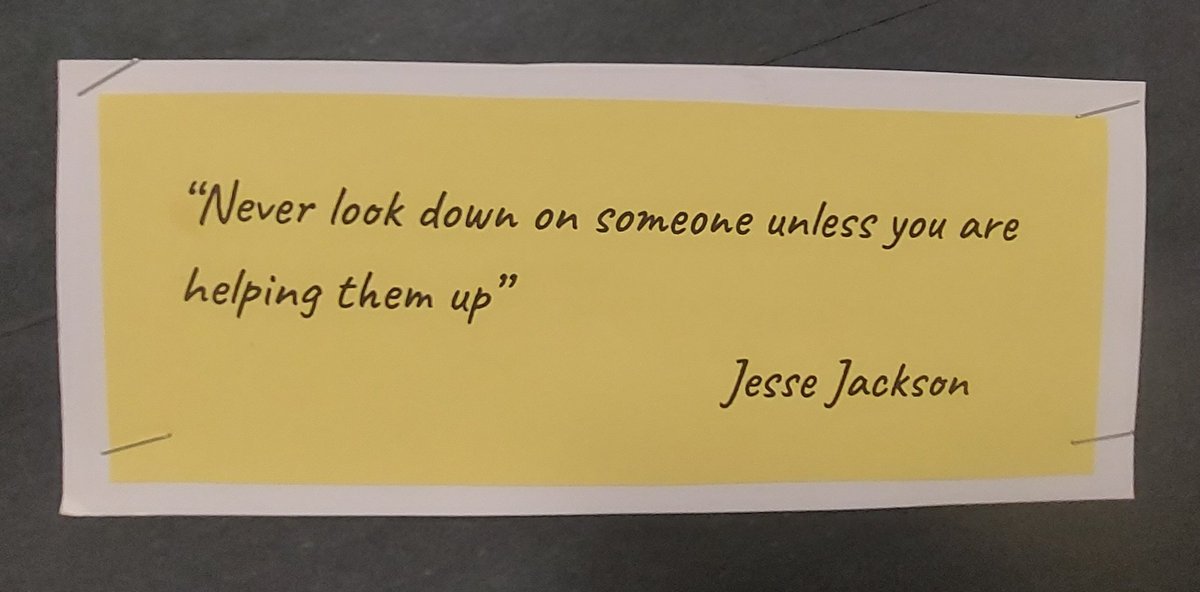 “Never look down on someone unless you are
helping them up”
Jesse Jackson